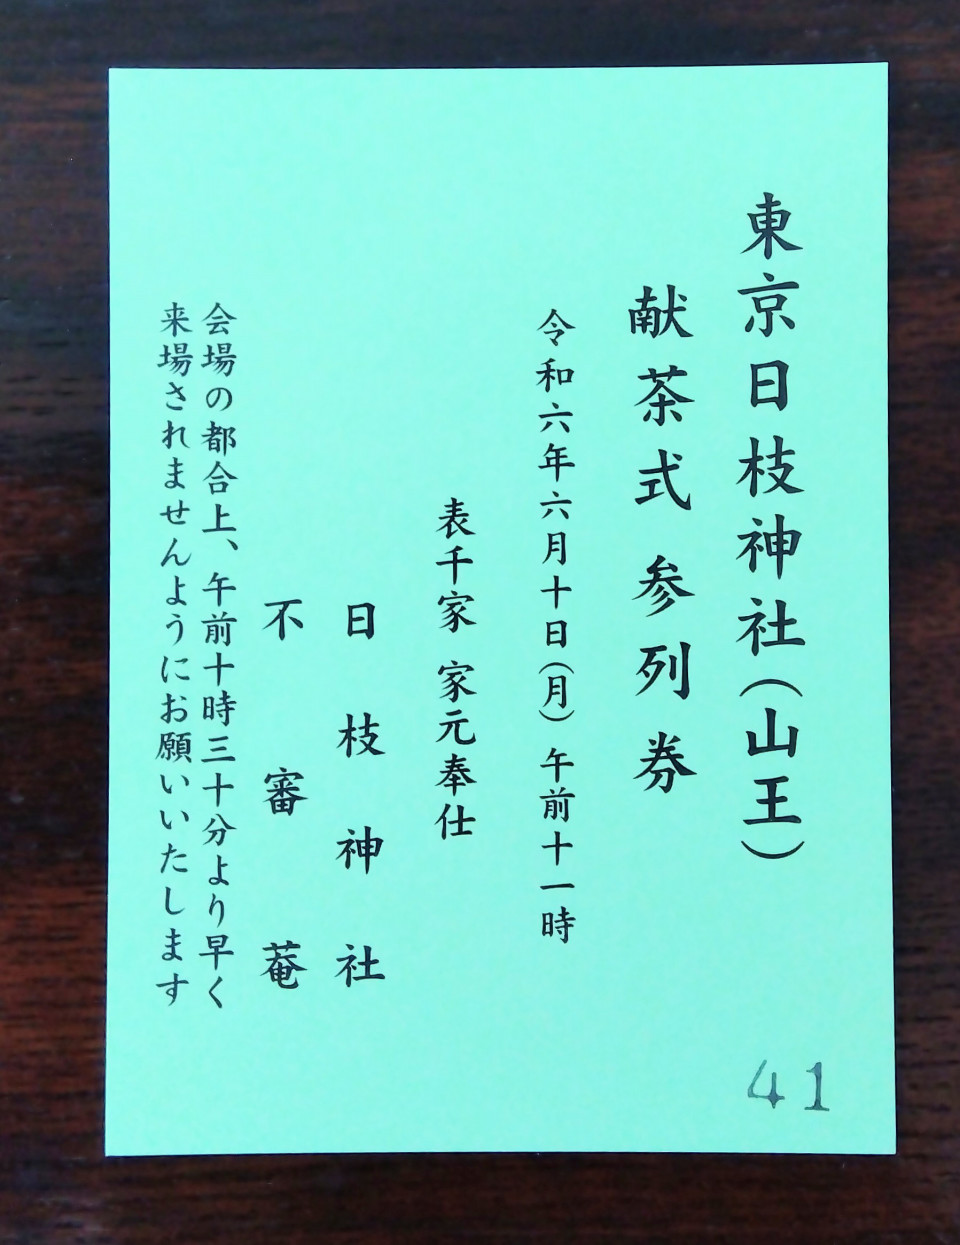 東京日枝神社(山王)
献茶式 参列券
令和六年六月十日(月) 午前十一時
表千家 家元奉仕
日枝神社
不審菴
会場の都合上、午前十時三十分より早く
来場されませんようにお願いいたします
41